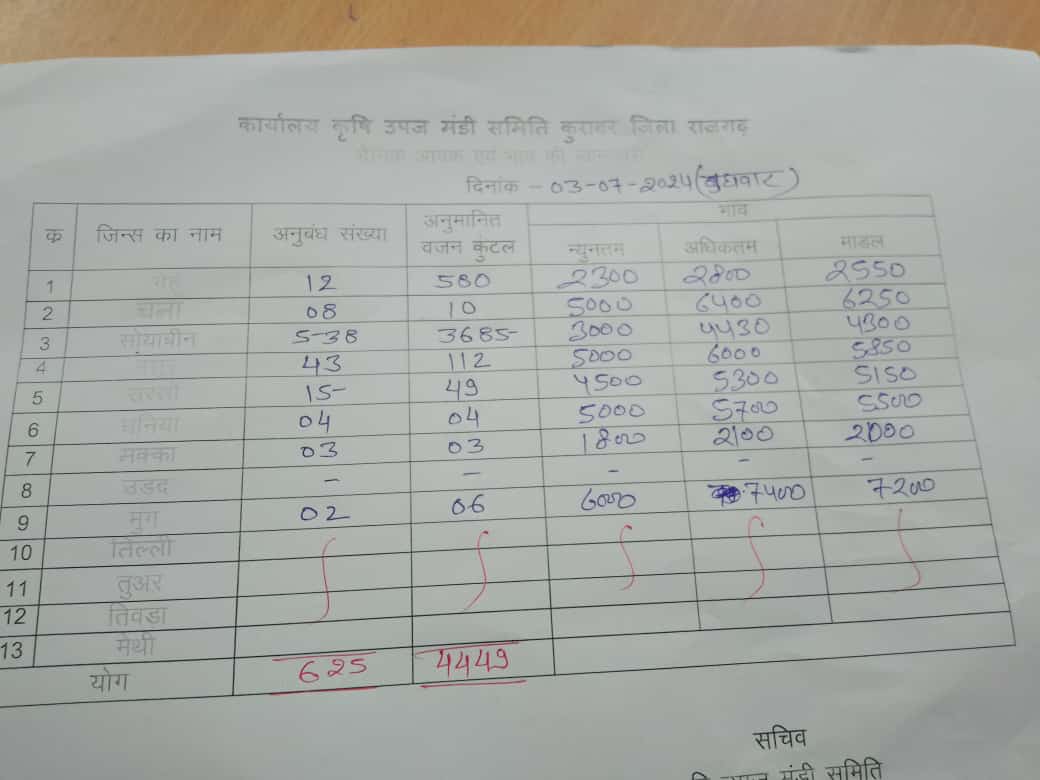 कार्यालय कृषि उपज मंडी समिति कुरावर जिला राजगढ़
दैनिक आवक एवं भाव की जानकारी
दिनांक - 03-07-2024 (बुधवार)
क्र जिन्स का नाम अनुबंध संख्या अनुमानित वजन कुंटल भाव
न्युनतम अधिकतम माडल
1 गेहू 12 580 2300 2800 2550
2 चना 08 10 5000 6400 6250
3 सोयाबीन 538 3685 3000 4430 4300
4 मसूर 43 112 5000 6000 5850
5 सरसो 15 49 4500 5300 5150
6 धनिया 04 04 5000 5700 5500
7 मक्का 03 03 1800 2100 2000
8 उडद - - - - -
9 मुग 02 06 6000 7400 7200
10 तिल्ली
11 तुअर
12 तिवडा
13 मेथी
योग 625 4449
सचिव
उपज मंडी समिति